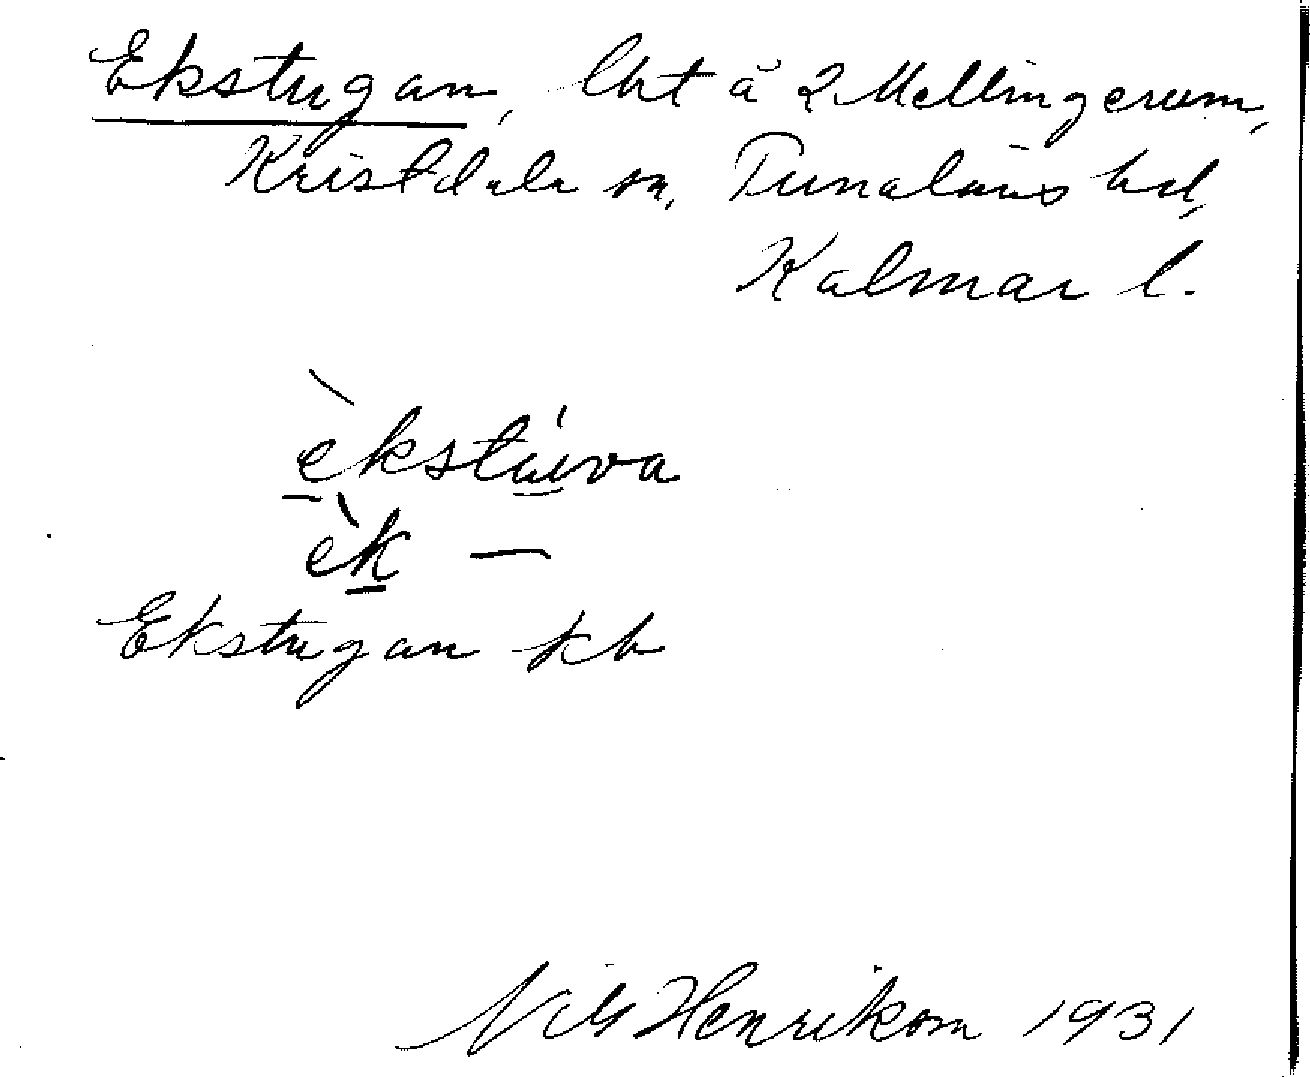 Ekstugan, lht å 2 Mellingerum,
Kristdala sn, Tunaläns hd,
Kalmar l.
èkstúva
èk —
Ekstugan kb
Nils Henrikson 1931